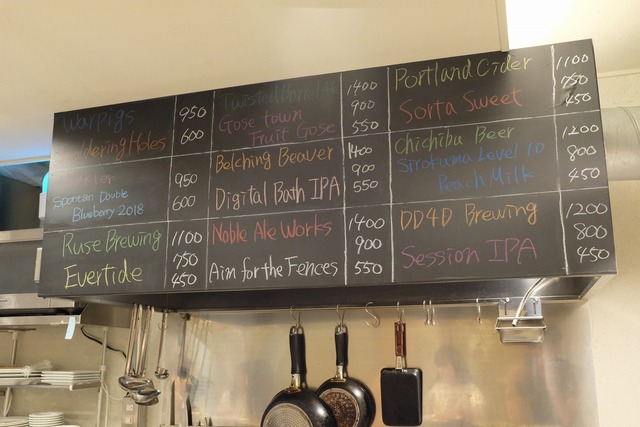 Warpigs
Holes
950
600
Twisted Barrel
Gose town
Fruit Gose
1400
900
550
Portland Cider
Sorta Sweet
1100
750
450
Spontan Double
Blueberry 2018
950
600
Belching Beaver
Digital Bath IPA
1400
900
550
Chichibu Beer
Sirokuma Level 10
Peach Milk
1200
800
450
Ruse Brewing
Evertide
1100
750
450
Noble Ale Works
Aim for the Fences
1400
900
550
DD4D Brewing
Session IPA
1200
800
450